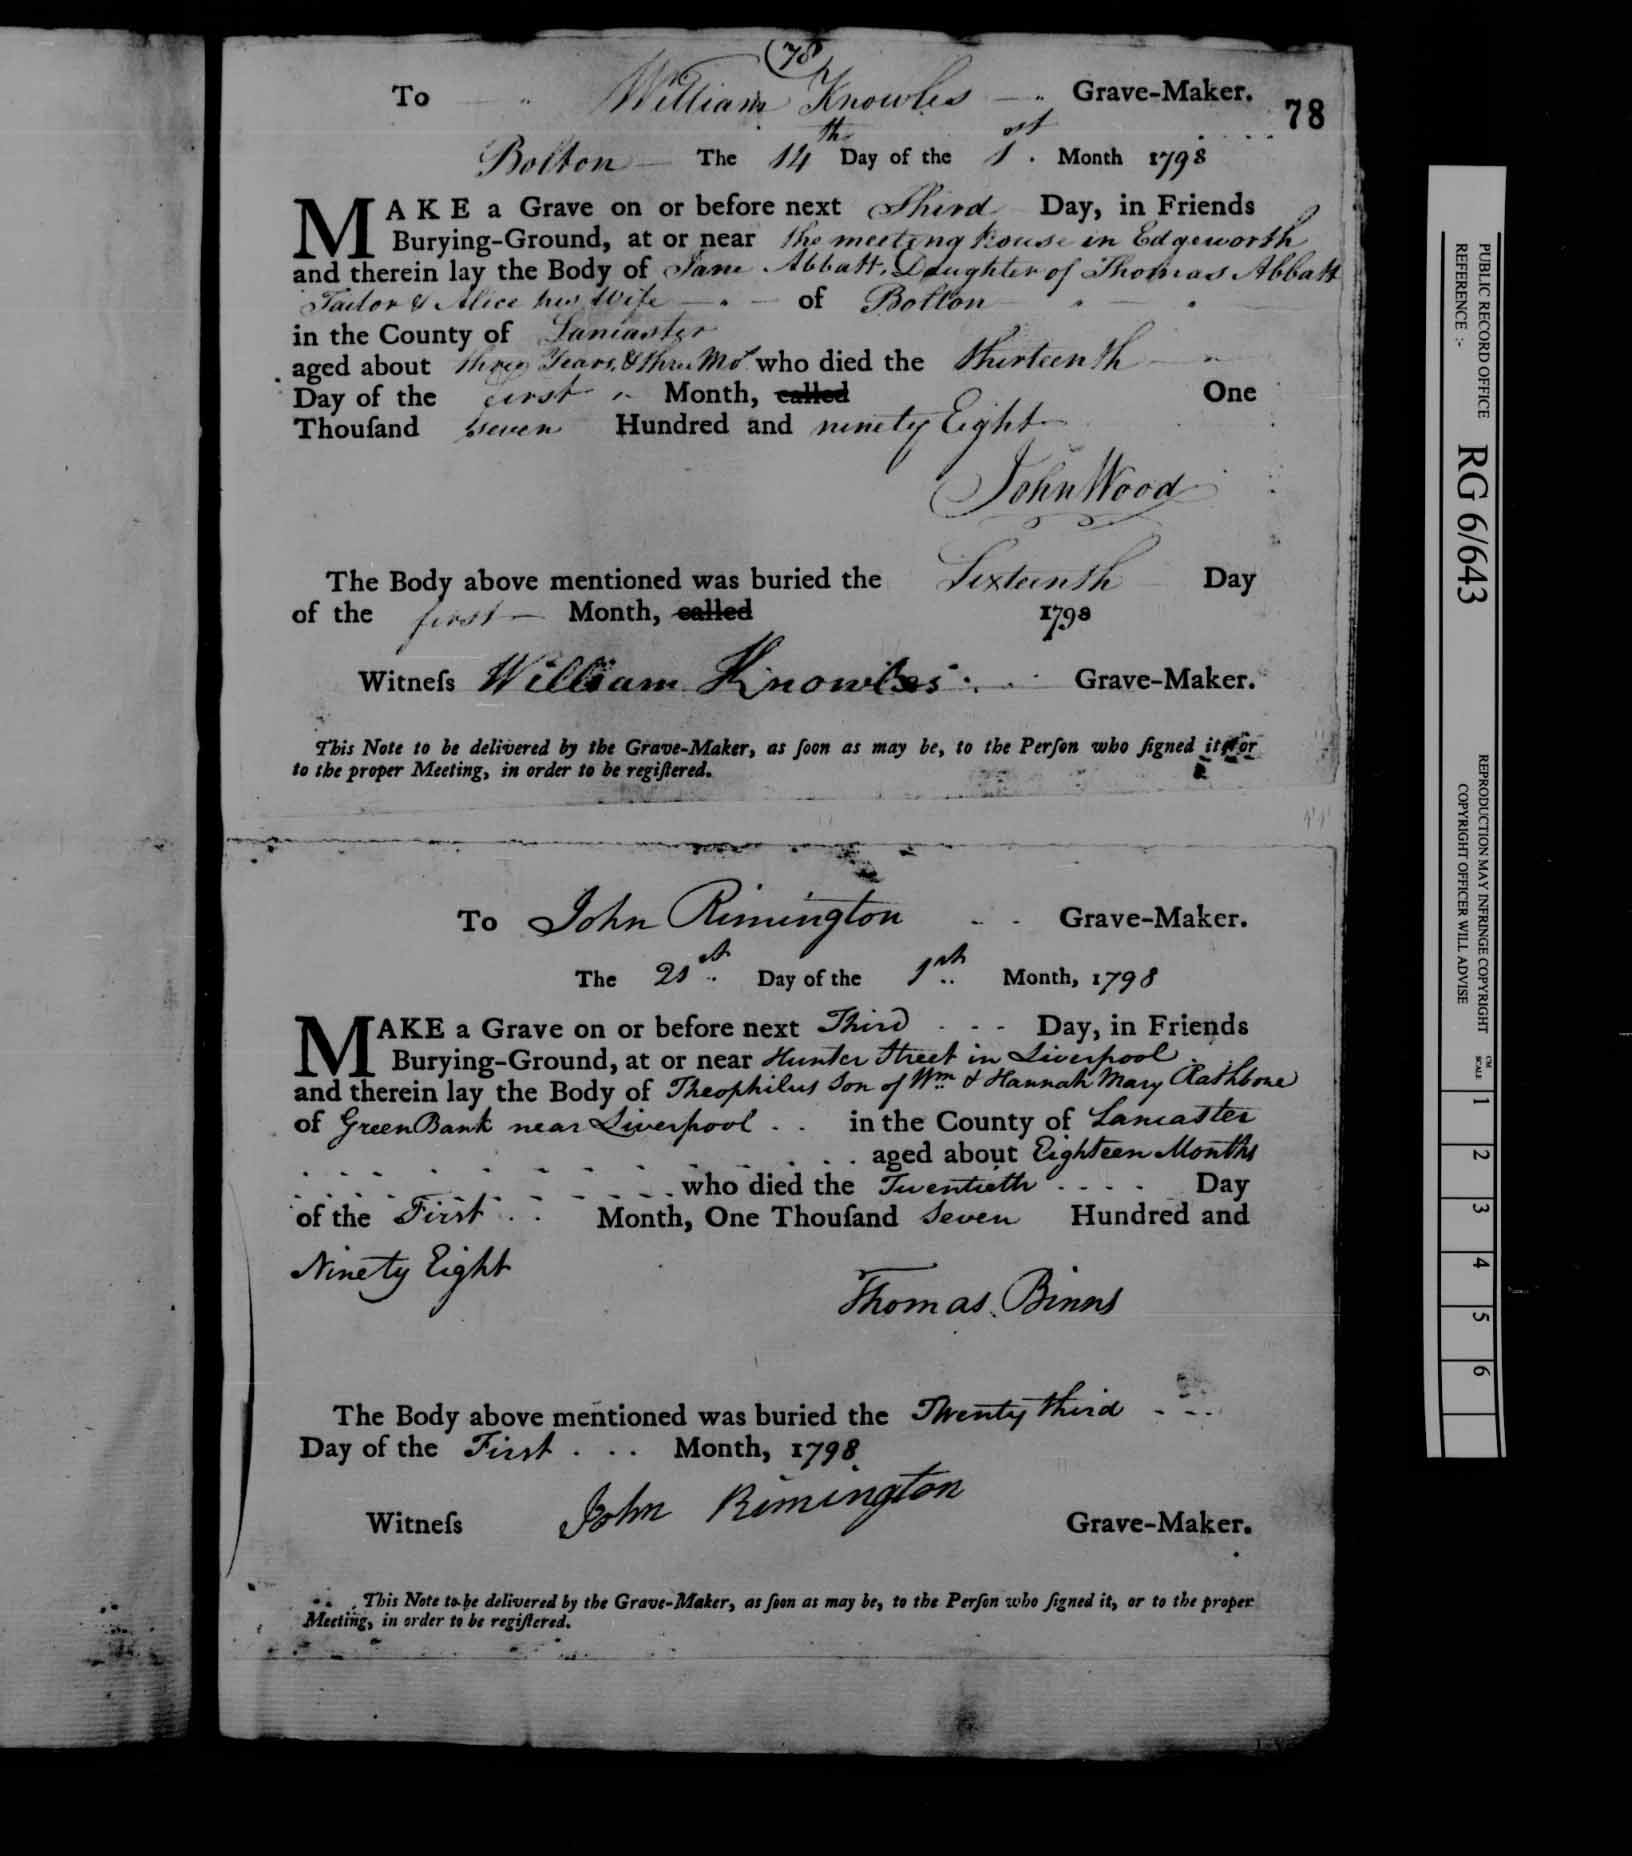 (78)
To William Knowles Grave-Maker.
78
Bolton The 14th Day of the 1st Month 1798
MAKE a Grave on or before next Third Day, in Friends
Burying-Ground, at or near the meeting house in Edgeworth
and therein lay the Body of Jane Abbatt, Daughter of Thomas Abbatt
Tailor & Alice his Wife of Bolton
in the County of Lancaster
aged about three Years, & three Mos. who died the thirteenth
Day of the first Month, called One
Thouſand seven Hundred and ninety Eight
John Wood
The Body above mentioned was buried the Sixteenth Day
of the first Month, called 1798
Witneſs William Knowles Grave-Maker.
This Note to be delivered by the Grave-Maker, as ſoon as may be, to the Perſon who ſigned it, or
to the proper Meeting, in order to be regiſtered.
To John Rimington Grave-Maker.
The 21st Day of the 1st Month, 1798
MAKE a Grave on or before next Third Day, in Friends
Burying-Ground, at or near Hunter Street in Liverpool
and therein lay the Body of Theophilus Son of Wm & Hannah Mary Rathbone
of Green Bank near Liverpool in the County of Lancaster
aged about Eighteen Months
who died the Twentieth Day
of the First Month, One Thouſand Seven Hundred and
Ninety Eight
Thomas Binns
The Body above mentioned was buried the Twenty third
Day of the First Month, 1798
Witneſs John Rimington Grave-Maker.
This Note to be delivered by the Grave-Maker, as ſoon as may be, to the Perſon who ſigned it, or to the proper
Meeting, in order to be regiſtered.
PUBLIC RECORD OFFICE
REFERENCE :-
RG 6/643
REPRODUCTION MAY INFRINGE COPYRIGHT
COPYRIGHT OFFICER WILL ADVISE
CM
SCALE
1
2
3
4
5
6